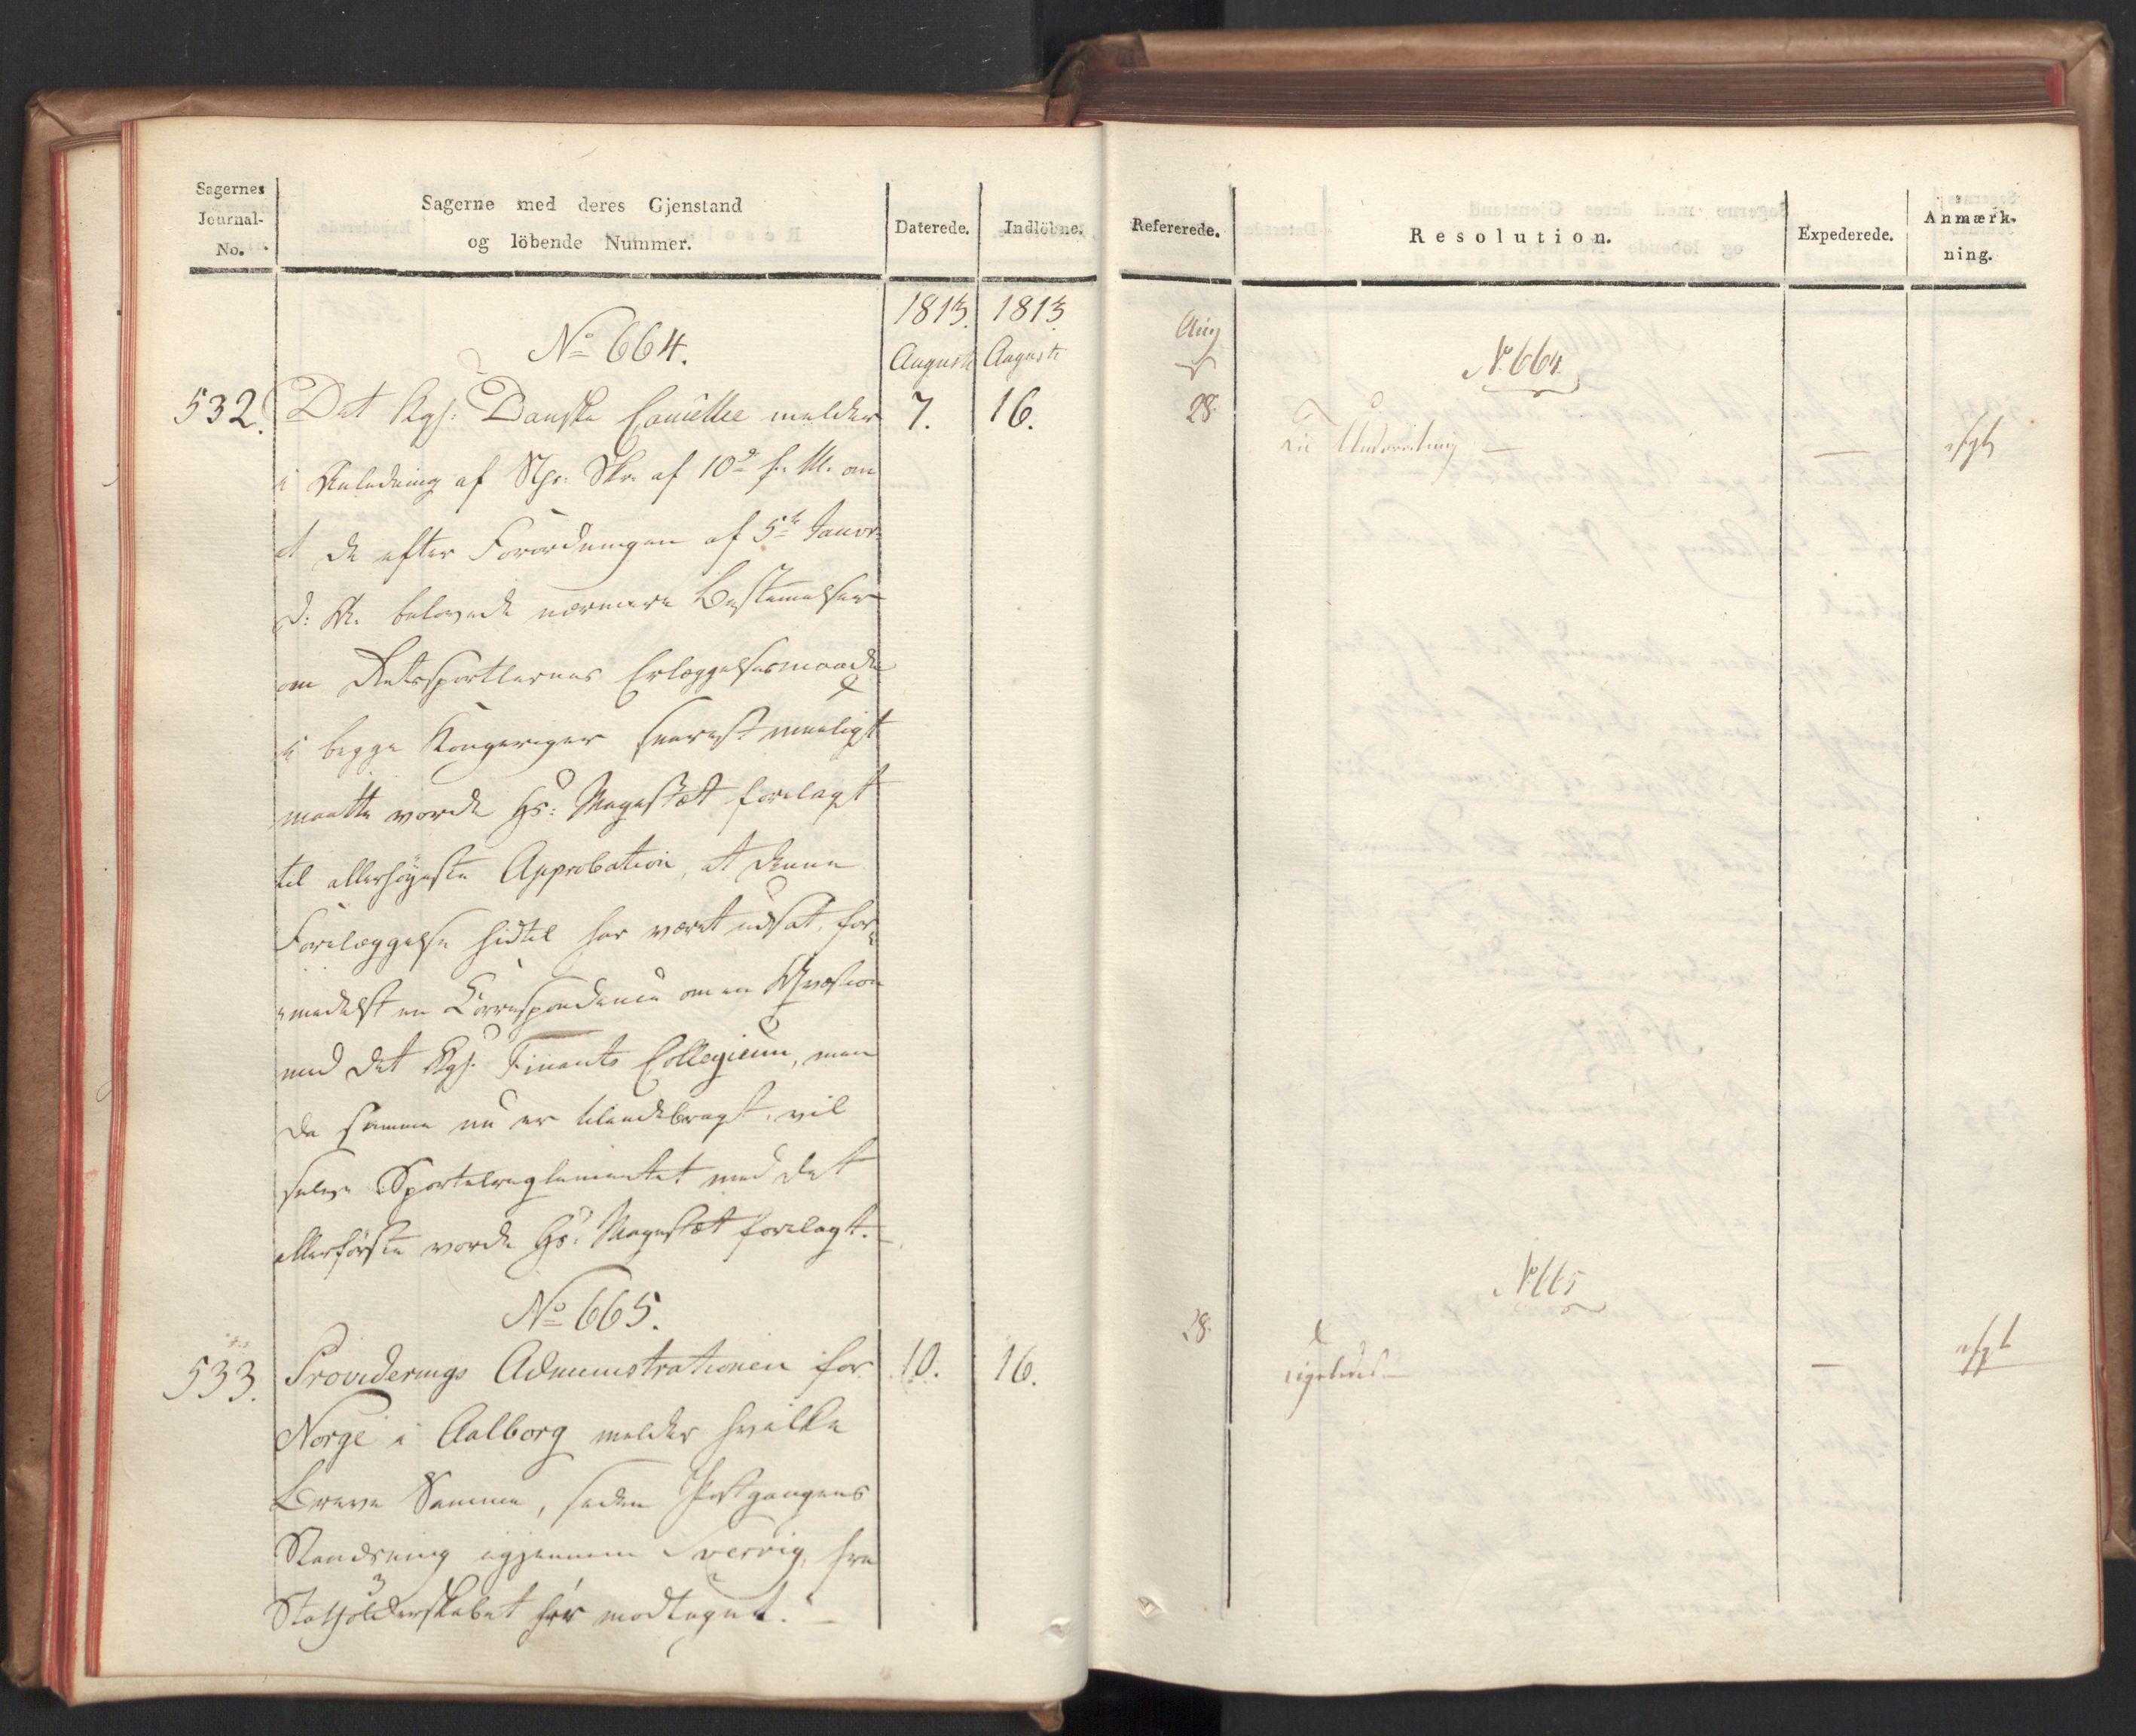 Sagernes
Journal-
No.
Sagerne med deres Gjenstand
og löbende Nummer.
Daterede.
Indlöbne.
1813. 1813.
Auguste Auguste
No 664.
532. Det Kgl: Danske Cancellie melder 7. 16.
i Anledning af Skr. af 10de f. M. om
at de efter Forordningen af 5te Januar
d: A. belovede nærmere Bestemmelser
om Retssportlernes Erlæggelsesmaade
i begge Kongeriger snarest mueligt
maatte vorde Hs: Majestæt forelagt
til allerhøyeste Approbation, at denne
Forelæggelse hidtil har været udsat, for-
medelst en Correspondence om en Qvæstion
med det Kgl. Finants Collegium, men
da samme nu er tilendebragt, vil
selve Sportelreglementet med det
allerførste vorde Hs: Majestæt forelagt.
No 665.
533. Providerings Administrationen for 10. 16.
Norge i Aalborg melder hvilke
Breve Samme, siden Postgangens
Standsning igjennem Sverrig, fra
Statholderskabet har modtaget.
Refererede.
Resolution.
Expederede.
Anmærk-
ning.
Aug
No 664.
28.
Til Underretning —
No 665
28.
ligeledes —